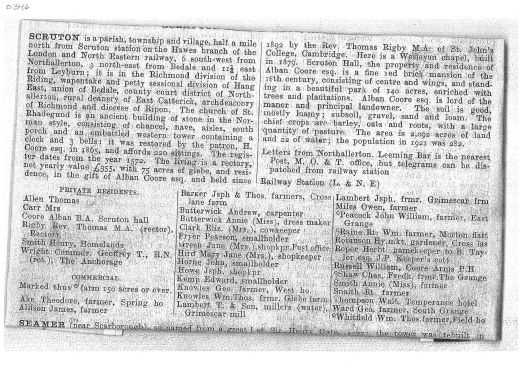 0346
SCRUTON is a parish, township and village, half a mile
north from Scruton station on the Hawes branch of the
London and North Eastern railway, 6 south-west from
Northallerton, 3 north-east from Bedale and 11¾ east
from Leyburn; it is in the Richmond division of the
Riding, wapentake and petty sessional division of Hang
East, union of Bedale, county court district of North-
allerton, rural deanery of East Catterick, archdeaconry
of Richmond and diocese of Ripon. The church of St.
Rhadegund is an ancient building of stone in the Nor-
man style, consisting of chancel, nave, aisles, south
porch and an embattled western tower containing a
clock and 3 bells: it was restored by the patron, H.
Coore esq. in 1865, and affords 220 sittings. The regis-
ter dates from the year 1572. The living is a rectory,
net yearly value £355, with 75 acres of glebe, and resi-
dence, in the gift of Alban Coore esq. and held since
PRIVATE RESIDENTS.
Allen Thomas
Carr Mrs
Coore Alban B.A. Scruton hall
Rigby Rev. Thomas M.A. (rector),
Rectory
Smith Henry, Homelands
Wright Commdr. Geoffrey T., R.N.
(ret.), The Anchorage
COMMERCIAL.
Marked thus ° farm 150 acres or over.
Ake Theodore, farmer, Spring ho
Allison James, farmer
1892 by the Rev. Thomas Rigby M.A. of St. John's
College, Cambridge. Here is a Wesleyan chapel, built
in 1879. Scruton Hall, the property and residence of
Alban Coore esq. is a fine red brick mansion of the
18th century, consisting of centre and wings, and stand-
ing in a beautiful park of 140 acres, enriched with
trees and plantations. Alban Coore esq. is lord of the
manor and principal landowner. The soil is good,
mostly loamy; subsoil, gravel, sand and loam. The
chief crops are barley, oats and roots, with a large
quantity of pasture. The area is 2,092 acres of land
and 22 of water; the population in 1921 was 282.
Letters from Northallerton. Leeming Bar is the nearest
Post, M. O. & T. office, but telegrams can be dis-
patched from railway station
Railway Station (L. & N. E)
Barker Jsph & Thos. farmers, Cross
lane farm
Butterwick Andrew, carpenter
Butterwick Annie (Miss), dress maker
Clark Eliz. (Mrs.), cowkeeper
Fryer Pearson, smallholder
Green Jane (Mrs.), shopkpr. Post office
Hird Mary Jane (Mrs.), shopkeeper
Horne John, smallholder
Howe Jsph. shopkpr
Kemp Edward, smallholder
Knowles Geo. farmer, West ho
Knowles Wm. Thos. frmr. Glebe farm
Lambert T. & Son, millers (water),
Grimescar mill
Lambert Jsph. frmr. Grimescar frm
Miles Owen, farmer
°Peacock John William, farmer, East
Grange
°Raine Rt. Wm. farmer, Morton flatt
Robinson Hy. mkt. gardener, Cross las
Roper Herbt. gamekeeper to B. Tay-
lor esq. J.P. Keeper's cott
Russell William, Coore Arms P.H
°Shaw Chas. Fredk. frmr. The Grange
Smith Annie (Miss), farmer
Smith Rt. farmer
Thompson Walt. Temperance hotel
Ward Geo. farmer, South Grange
°Whitfield Wm. Thos. farmer, Field ho
SEAMER (near Scarborough), so named from a great